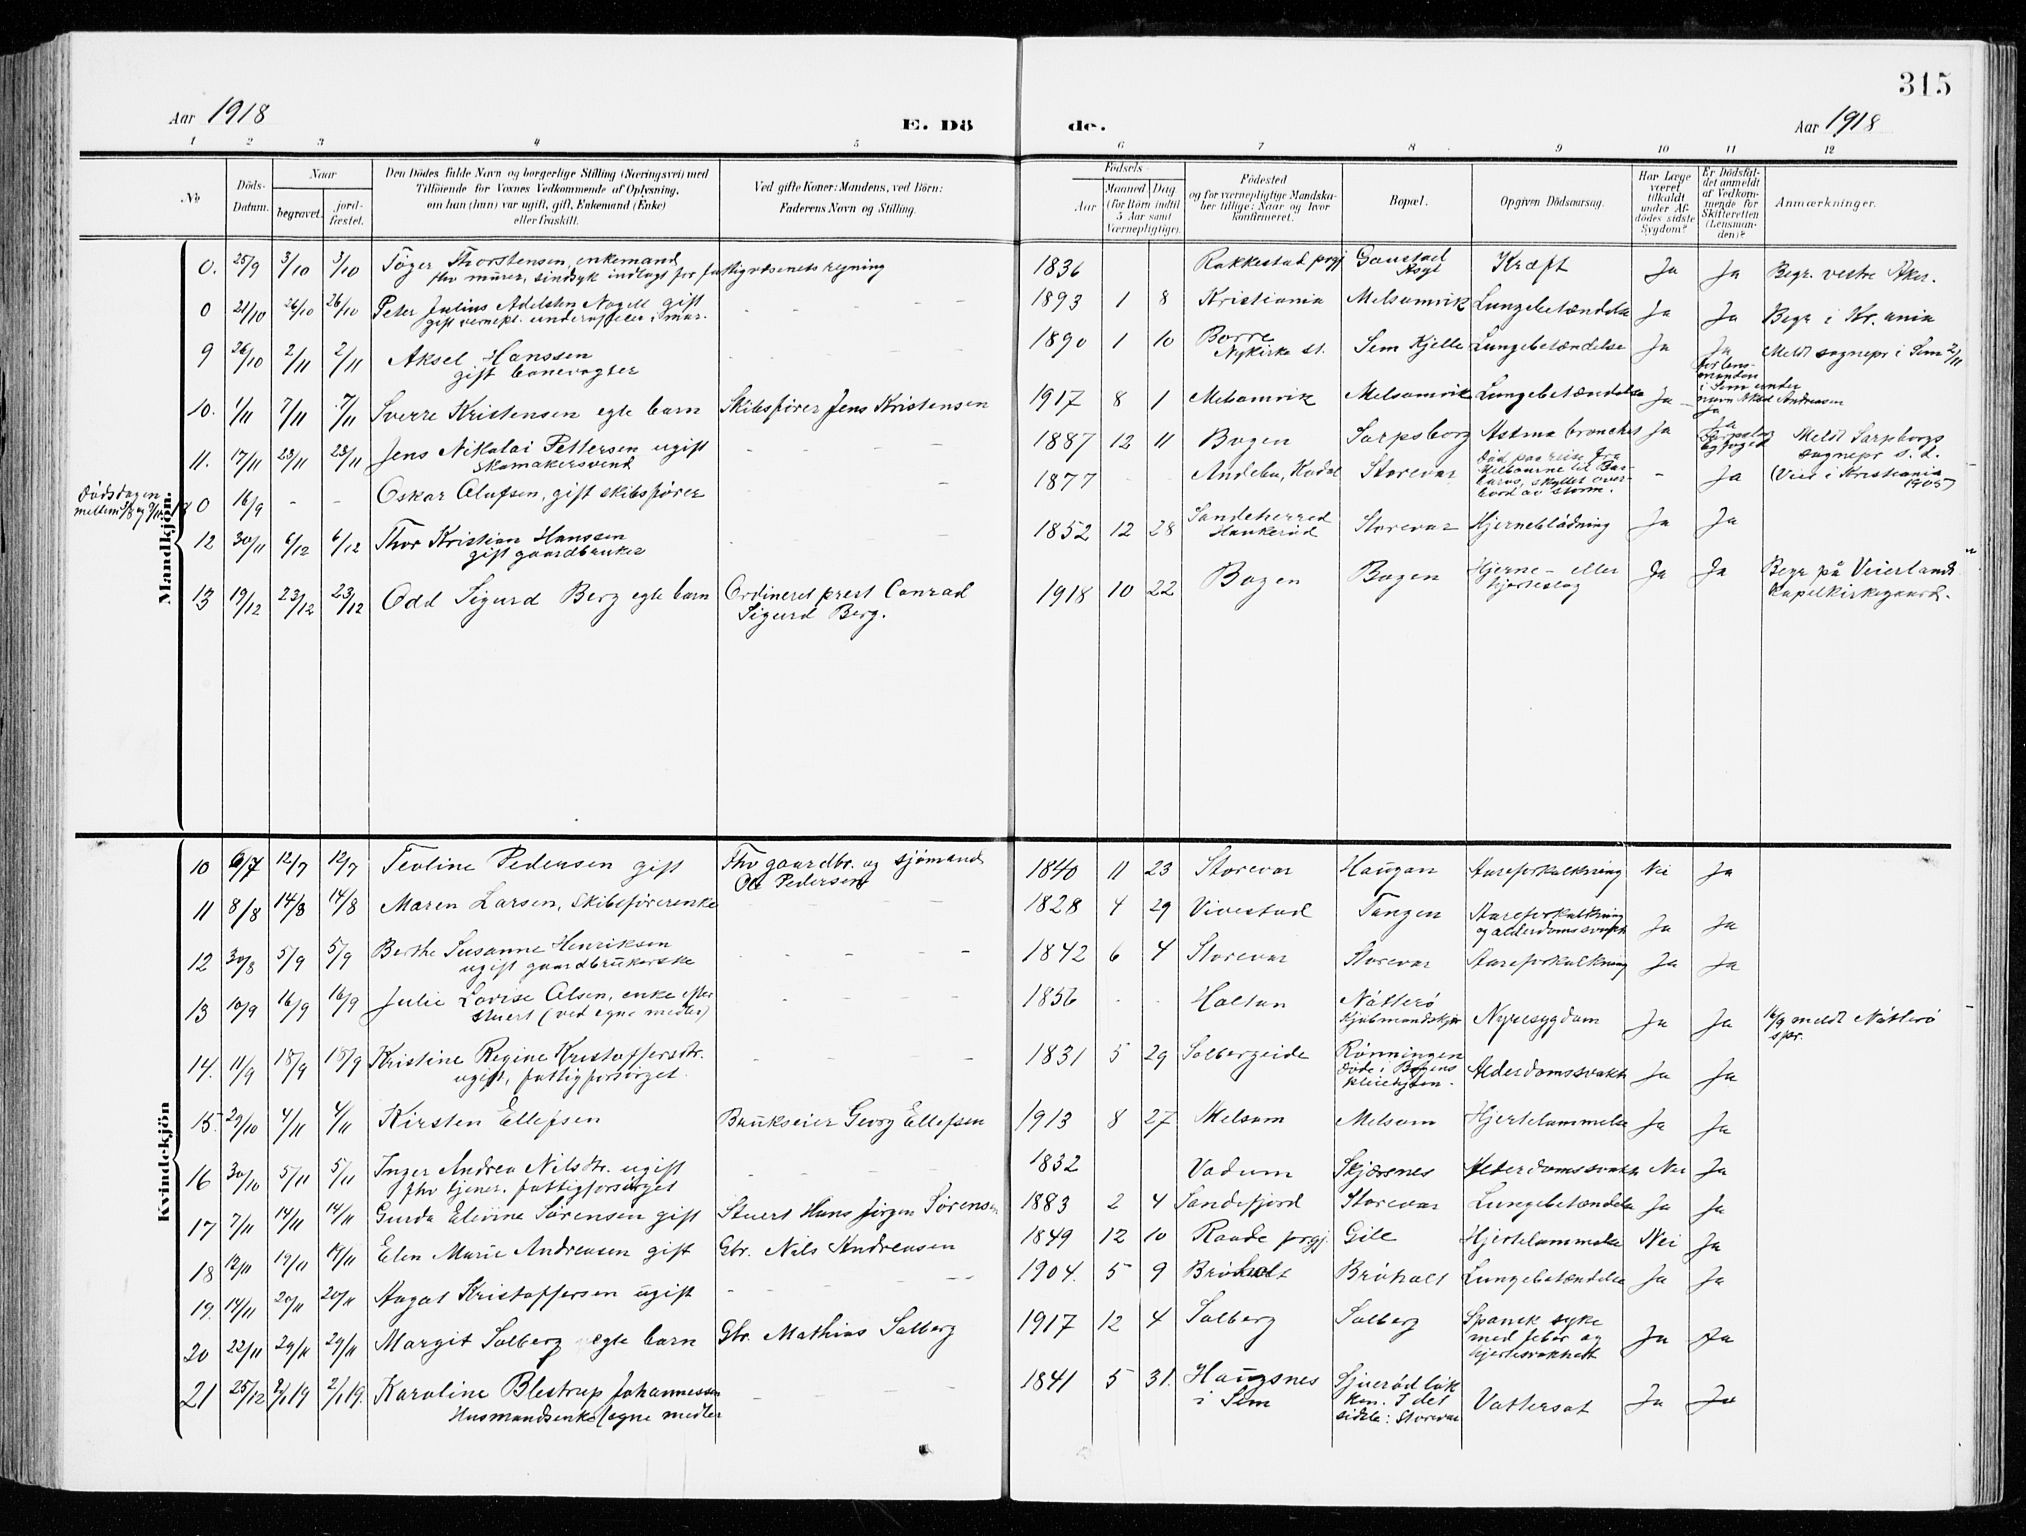 315
Aar 1918
E. Dö
de.
Aar 1918
1 2 3 4 5 6 7 8 9 10 11 12
No
Döds-Datum.
Naar
begravet.
jord-fæstet.
Den Dödes fulde Navn og borgerlige Stilling (Næringsvei) med
Tilföiende for Voxnes Vedkommende af Oplysning,
om han (hun) var ugift, gift, Enkemand (Enke)
eller fraskilt.
Ved gifte Koner: Mandens, ved Börn:
Faderens Navn og Stilling.
Födsels-
Aar
Maaned Dag
(for Börn indtil
5 Aar samt
Værnepligtige).
Födested
og for værnepligtige Mandska-
ber tillige: Naar og hvor
konfirmeret.
Bopæl.
Opgiven Dödsaarsag.
Har Læge
været
tilkaldt
under Af-
dödes sidste
Sygdom?
Er Dödsfal-
det anmeldt
af Vedkom-
mende for
Skifteretten
(Lensman-
den)?
Anmærkninger.
Mandkjön.
0. 25/9 3/10 3/10 Töger Thorstensen, enkemand 1836 Rakkestad prgj Gaustad Asyl Kræft Ja Ja Begr. vestre Aker.
fhv murer, sindsyk indlagt for fattigvæsenets regning
0 21/10 26/10 26/10 Peter Julius Adelsten Nagell gift - - - 1893 1 8 Kristiania Melsomvik Lungebetændelse Ja Ja Begr i Kr.ania
gift vernepl. underofficer i mar.
9 26/10 2/11 2/11 Aksel Hanssen - - - 1890 1 10 Borre Nykirke st. Sem Kjelle Lungebetændelse Ja Ja Meldt sognepr i Sem 2/11
gift banevogter
for lens-
manden
i Sem under
navn Aksel Andreasen
10. 1/11 7/11 7/11 Sverre Kristensen egte barn Skibsförer Jens Kristensen 1917 8 1 Melsomvik Melsomvik Lungebetændelse Ja Ja
11. 17/11 23/11 23/11 Jens Nikolai Pettersen ugift - - - 1887 12 11 Bogen Sarpsborg Astma bronchit Ja Ja Sarpsborg byfoged Meldt Sarpborgs
skomakersvend
sognepr s. d.
Dödsdagen
mellem
0 16/9 - - Oskar Olafsen, gift skibsförer - 1877 Andebu, Kodal Storevar Död paa reise fra
Melbourne til Bar-
bados, skyllet over-
bord av storm. - Ja (Viet i Kristiania
1905)
12 30/11 6/12 6/12 Thor Kristian Hanssen - - - 1852 12 28 Sandeherred Haukeröd Storevar Hjerneblödning Ja Ja
gift gaardbruker
13 19/12 23/12 23/12 Odd Sigurd Berg egte barn Ordineret prest Conrad 1918 10 22 Bogen Bogen Hjerne- eller Ja Ja Begr på Veierland
Sigurd Berg. hjerteslag kapelkirkegaard.
Kvindekjön
10 6/7 12/7 12/7 Teoline Pedersen gift Fhv gaardbr. og sjömand 1840 11 23 Storevar Haugan Aareforkalkning Nei Ja
Ole Pedersen
11 8/8 14/8 14/8 Maren Larsen, skibsförerenke - - - 1828 4 29 Vivestad Tangen Aareforkalkning Ja Ja
og alderdomssvakh
12 30/8 5/9 5/9 Berthe Susanne Henriksen - - - 1842 6 4 Storevar Storevar Aareforkalkning Ja Ja
ugift gaardbrukerske
13 10/9 16/9 16/9 Julie Lovise Olsen, enke efter - - - 1856 - - Holtan Nötterö Nyresygdom Ja Ja 16/9 meldt Nötterö
stuert (ved egne midler) Kjöbmandskjær spr.
14. 11/9 18/9 18/9 Kristine Regine Kristoffersdtr. - - - 1831 5 29 Solbergeide Rönningen Alderdomssvakh Ja Ja
ugift, fattigforsörget. döde i Bogens
pleiehjem.
15. 29/10 4/11 4/11 Kirsten Ellefsen Brukseier Georg Ellefsen 1913 8 27 Melsom Melsom Hjertelammelse Ja Ja
16 30/10 5/11 5/11 Inger Andrea Nilsdtr. ugift - - - 1832 Vadum Skjærsnes Alderdomssvakh Nei Ja
fhv tjener. fattigforsörget
17 7/11 14/11 14/11 Gurda Elevine Sörensen gift Stuert Hans Jörgen Sörensen 1883 2 4 Sandefjord Storevar Lungebetændelse Ja Ja
18 12/11 19/11 19/11 Elen Marie Andreasen gift Gbr. Nils Andreasen 1849 12 10 Raade prgj. Gile Hjertelammelse Nei Ja
19. 14/11 20/11 20/11 Aagot Kristoffersen ugift - - - 1904. 5 9 Bröholt Bröholt Lungebetændelse Ja Ja
20 22/11 29/11 29/11 Margit Solberg egte barn Gbr. Mathias Solberg 1917 12 4 Solberg Solberg Spansk syke Ja Ja
med feber og
hjertesvakhet
21 25/12 2/1 19 2/1 19. Karoline Blestrup Johannessen - - - 1841 5 31. Haugsnes Vattersot Ja Ja
Husmandsenke (egne midler i Sem